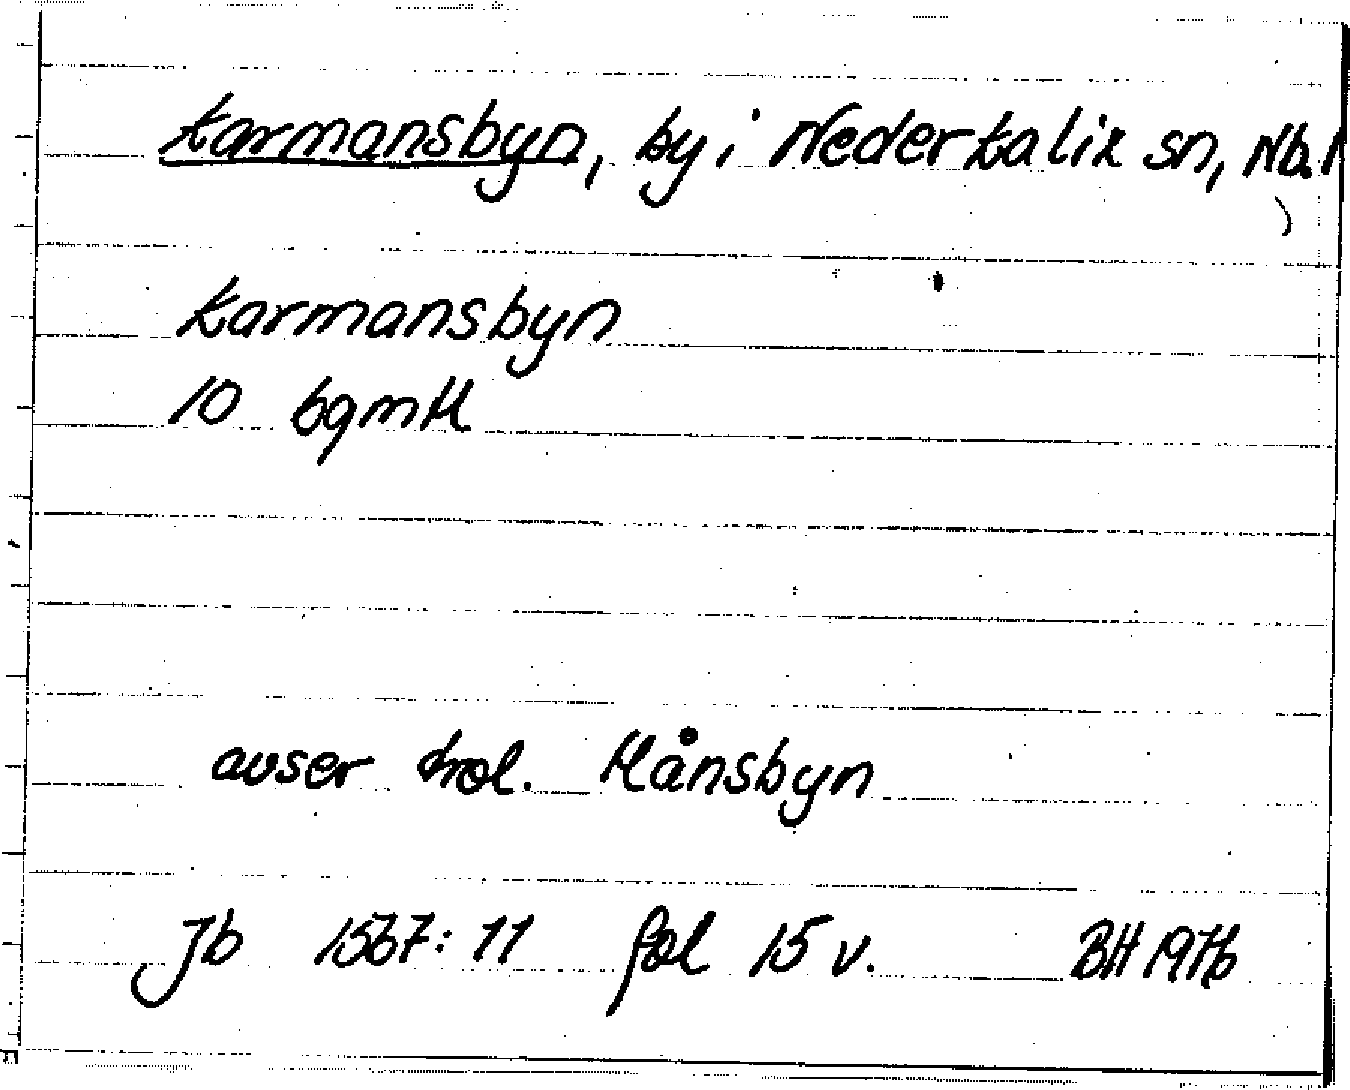 Karmansbyn, by i Nederkalix sn, Nb. l
Karmansbyn
10 bgmtl
avser trol. Månsbyn
Jb 1567:11 fol 15 v. BH 1976